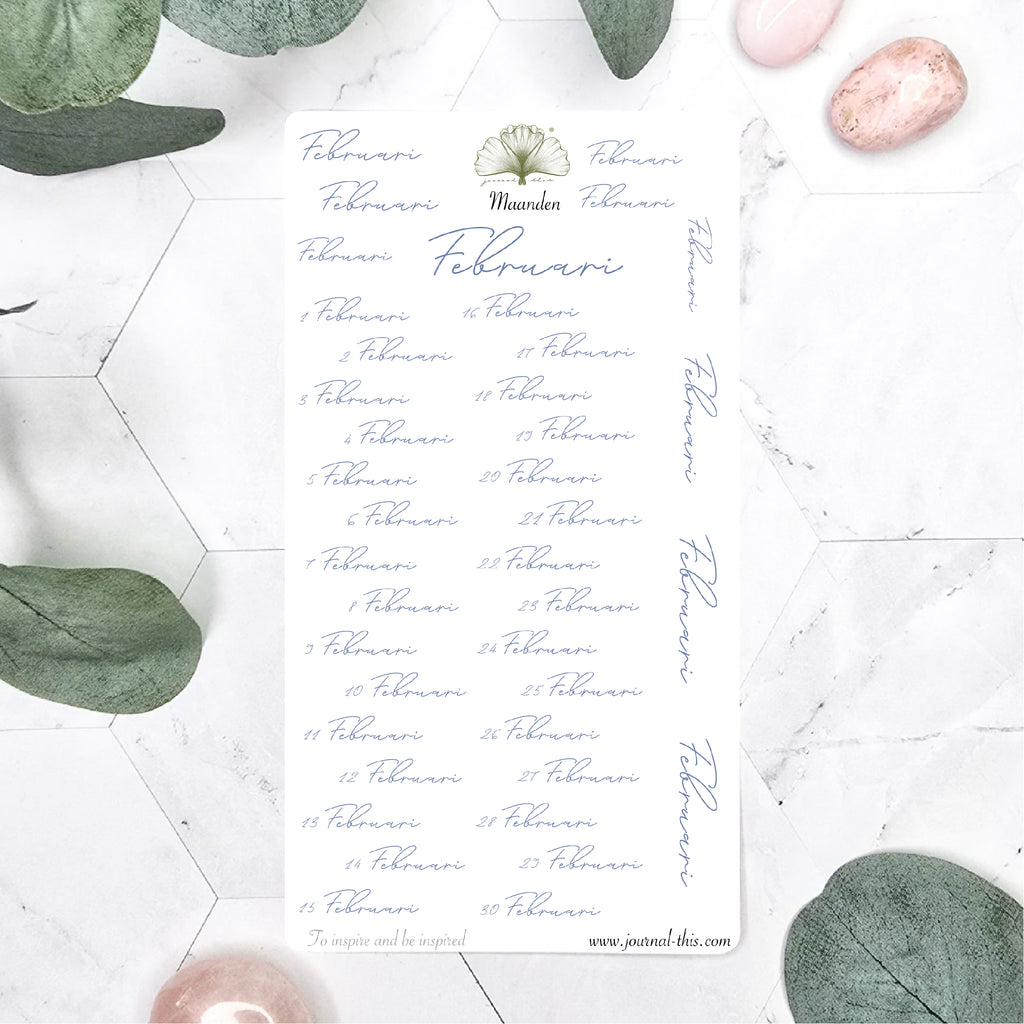 Februari
Februari
journal this
Maanden
Februari
Februari
Februari
Februari
1 Februari
2 Februari
3 Februari
4 Februari
5 Februari
6 Februari
7 Februari
8 Februari
9 Februari
10 Februari
11 Februari
12 Februari
13 Februari
14 Februari
15 Februari
16 Februari
17 Februari
18 Februari
19 Februari
20 Februari
21 Februari
22 Februari
23 Februari
24 Februari
25 Februari
26 Februari
27 Februari
28 Februari
29 Februari
30 Februari
Februari
Februari
Februari
Februari
To inspire and be inspired
www.journal-this.com